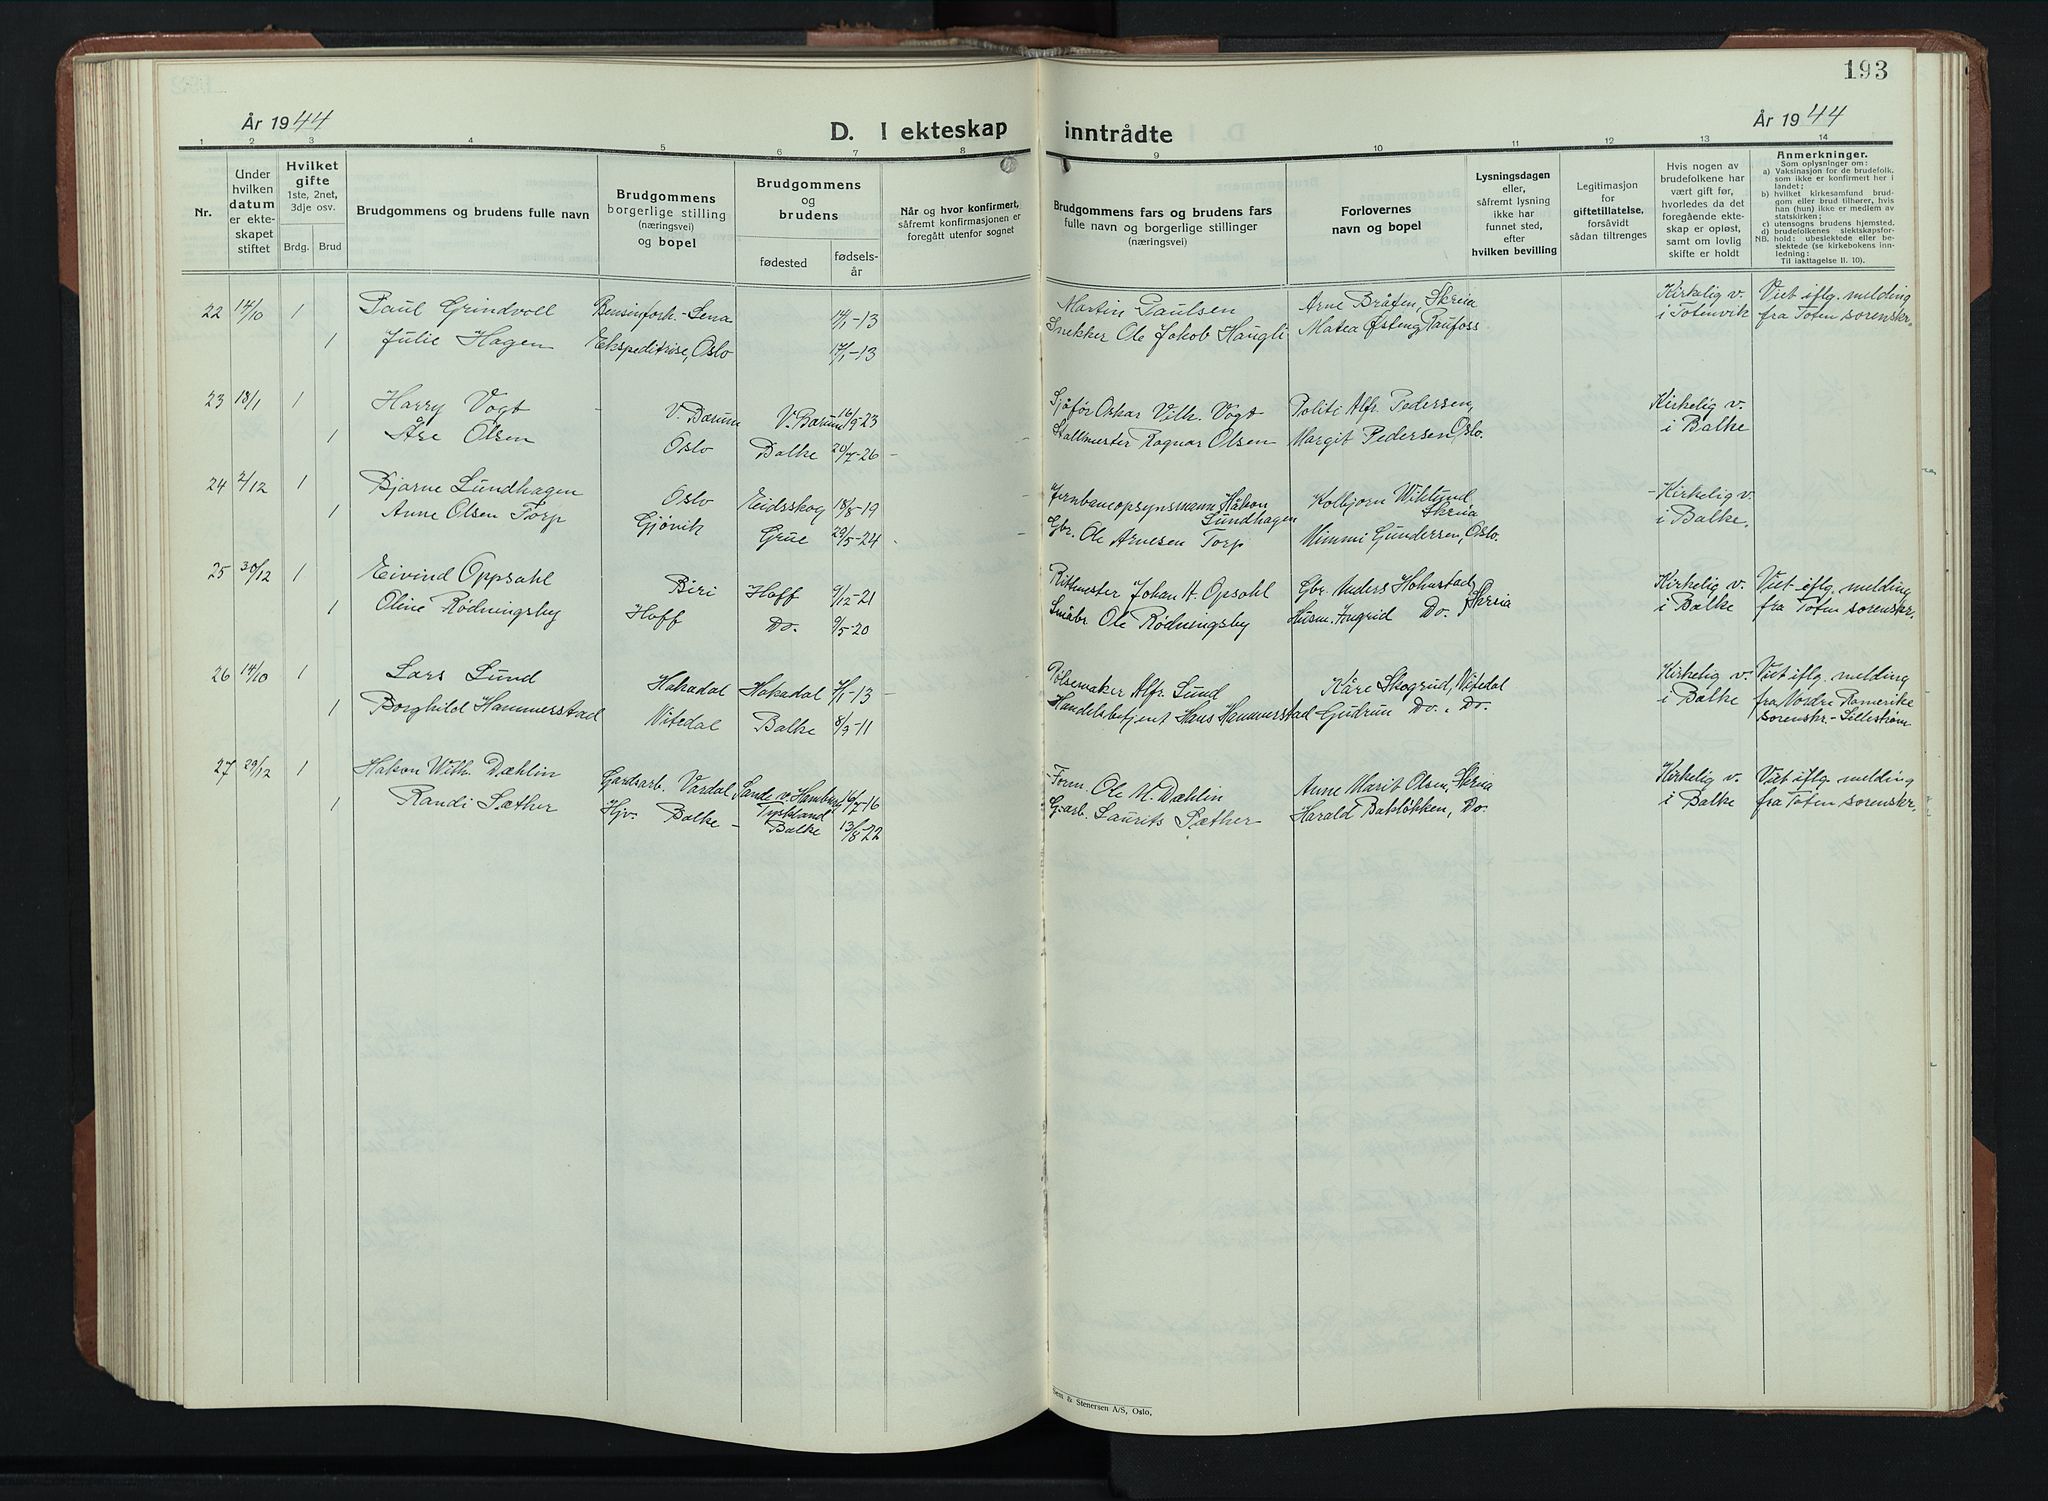 193
År 1944
D. I ekteskap inntrådte
År 1944
1 2 3 4 5 6 7 8 9 10 11 12 13 14
Nr.
Under
hvilken
datum
er ekte-
skapet
stiftet
Hvilket
gifte
1ste, 2net,
3dje osv.
Brdg. Brud
Brudgommens og brudens fulle navn
Brudgommens
borgerlige stilling
(næringsvei)
og bopel
Brudgommens
og
brudens
fødested
fødsels-
år
Når og hvor konfirmert,
såfremt konfirmasjonen er
foregått utenfor sognet
Brudgommens fars og brudens fars
fulle navn og borgerlige stillinger
(næringsvei)
Forlovernes
navn og bopel
Lysningsdagen
eller,
såfremt lysning
ikke har
funnet sted,
efter
hvilken bevilling
Legitimasjon
for
giftetillatelse,
forsåvidt
sådan tiltrenges
Hvis nogen av
brudefolkene har
vært gift før,
hvorledes da det
foregående ekte-
skap er opløst,
samt om lovlig
skifte er holdt
Anmerkninger.
Som oplysninger om:
a) Vaksinasjon for de brudefolk,
som ikke er konfirmert her i
landet;
b) hvilket kirkesamfund brud-
gom eller brud tilhører, hvis
han (hun) ikke er medlem av
statskirken;
c) utensogns brudens hjemsted.
d) brudefolkenes slektskapsfor-
NB. hold: ubeslektede eller be-
slektede (se kirkebokens inn-
ledning:
Til iakttagelse II. 10).
22 14/10 1 Paul Grindvoll Bensinforh. - Lena 14/1-13 Martin Paulsen Arne Bråten, Skreia Kirkelig v. Viet iflg. melding
1 Julie Hagen Ekspeditrise, Oslo 17/1-13 Snekker Ole Jakob Haugli Matea Østeng, Raufoss i Totenvik fra Toten sorenskr.
23 18/1 1 Harry Vogt V. Bærum V. Bærum 16/9-23 Sjåfør Oskar Vilh. Vogt Politi Alfr. Pedersen, Kirkelig v.
1 Åse Olsen Oslo Balke 20/7-26 Stallmester Ragnar Olsen Margit Pedersen, Oslo. i Balke
24 2/12 1 Bjarne Lundhagen Oslo Eidsskog 18/8-19 Jernbaneopsynsmann Håkon Kolbjørn Wiklund Kirkelig v.
Lundhagen Skreia
1 Anne Olsen Torp Gjøvik Grue 29/5-24 Gbr. Ole Arnesen Torp Mimmi Gundersen, Oslo. i Balke.
25 30/12 1 Eivind Oppsahl Biri Hoff 9/12-21 Ritmester Johan H. Opsahl Gbr. Anders Hohnstad Skreia Kirkelig v. Viet iflg. melding
1 Oline Rødningsby Hoff Do. 9/5-20 Småbr. Ole Rødningsby Husm. Ingrid Do. i Balke fra Toten sorenskr.
26 14/10 1 Lars Lund Hakadal Hakadal 7/1-13 Pølsemaker Alfr. Lund Kåre Skogrud, Nitedal Kirkelig v. Viet iflg. melding
1 Borghild Hammerstad Nitedal Balke 8/3-11 Handelsbetjent Hans Hammerstad Gudrun Do., Do. i Balke fra Nordre Romerike
sorenskr. - Lillestrøm
27 29/12 1 Håkon Wilh. Dæhlin Gardsarb. Vardal Sande v. Hamburg 16/7-16 Form. Ole M. Dæhlin Anne Marit Olsen, Skreia Kirkelig v. Viet iflg. melding
Tyskland
1 Randi Sæther Hjv. Balke - Balke 13/8-22 G.arb. Laurits Sæther Harald Bakløkken, Do. i Balke fra Toten sorenskr.
Sem & Stenersen A/S, Oslo,